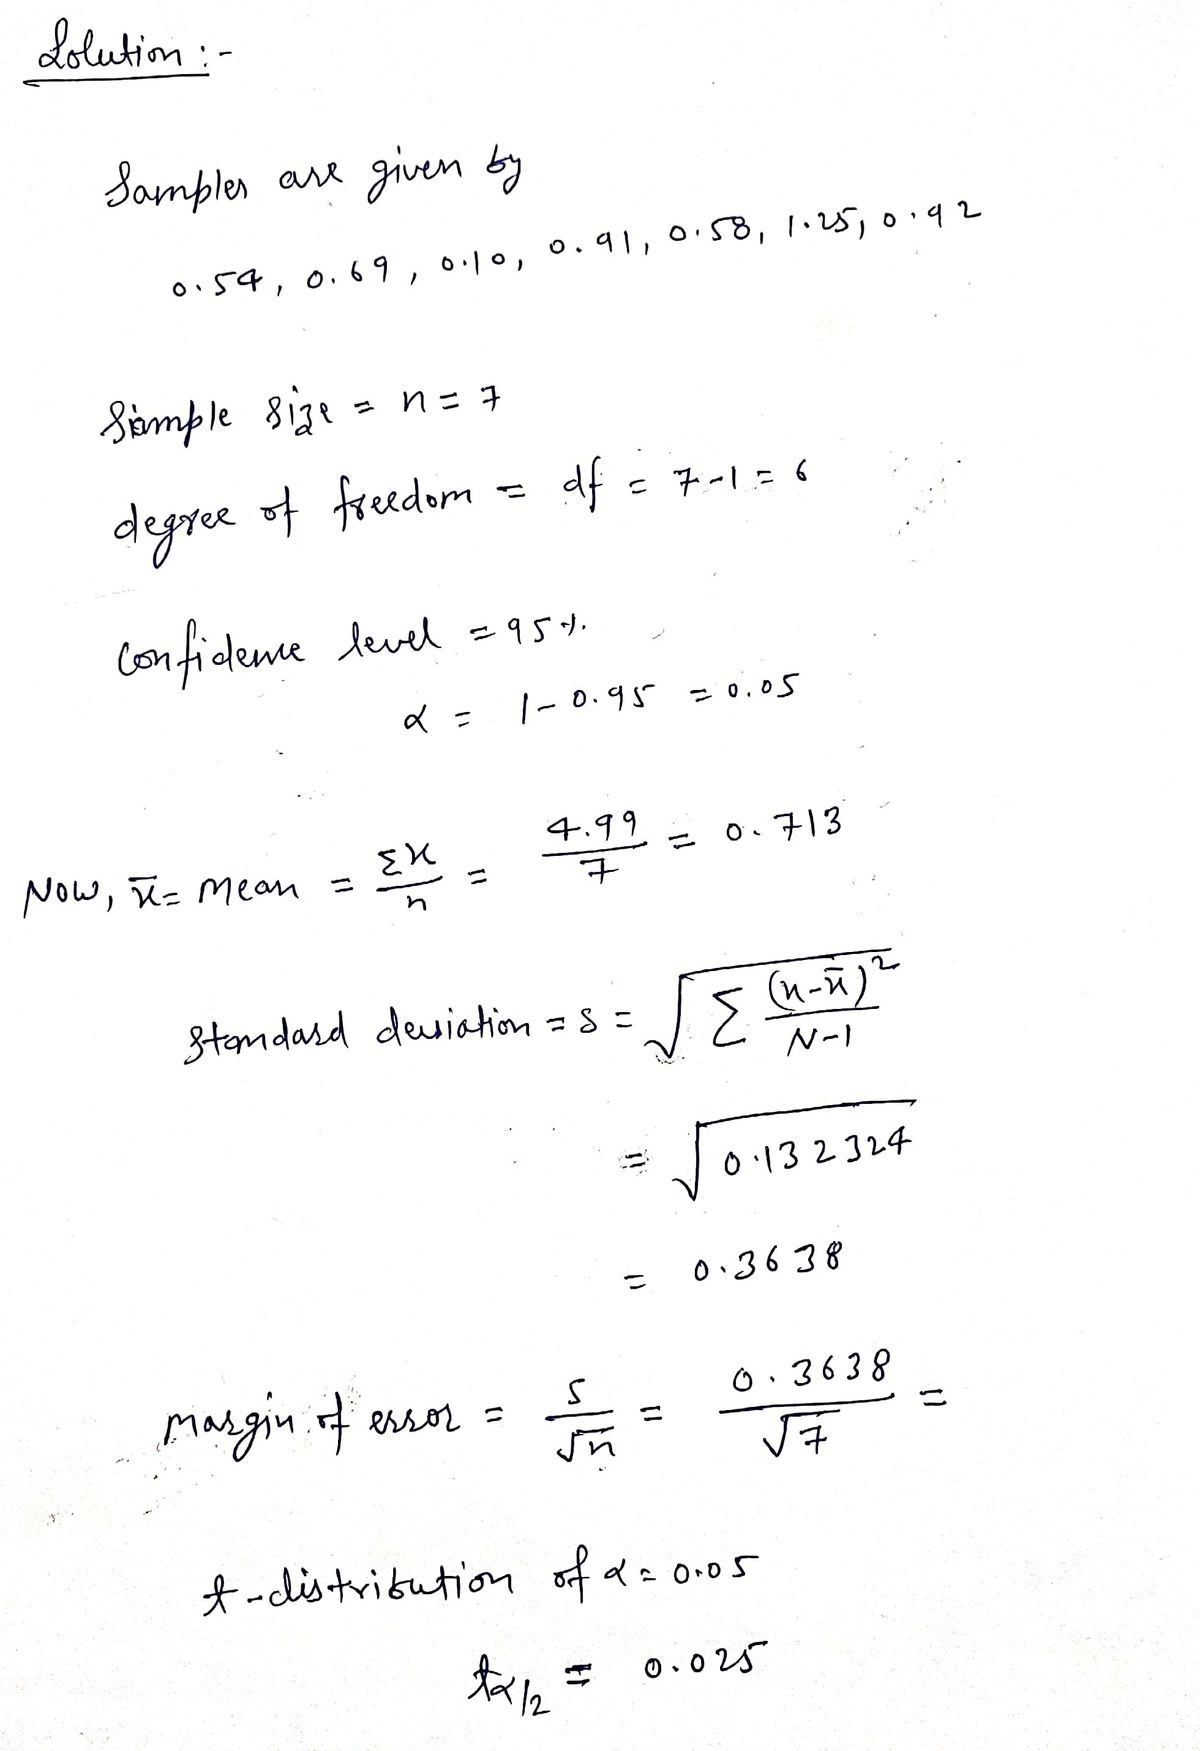 Solution :-
Samples are given by
0.54, 0.69, 0.10, 0.91, 0.58, 1.25, 0.92
Sample size = n = 7
degree of freedom = df = 7-1 = 6
Confidence level = 95%
α = 1-0.95 = 0.05
Now, x̄ = Mean = Σx/n = 4.99/7 = 0.713
Standard deviation = s = √(Σ (x-x̄)²/N-1)
= √0.132324
= 0.3638
Margin of error = s/√n = 0.3638/√7 =
t-distribution of α = 0.05
tα/2 = 0.025